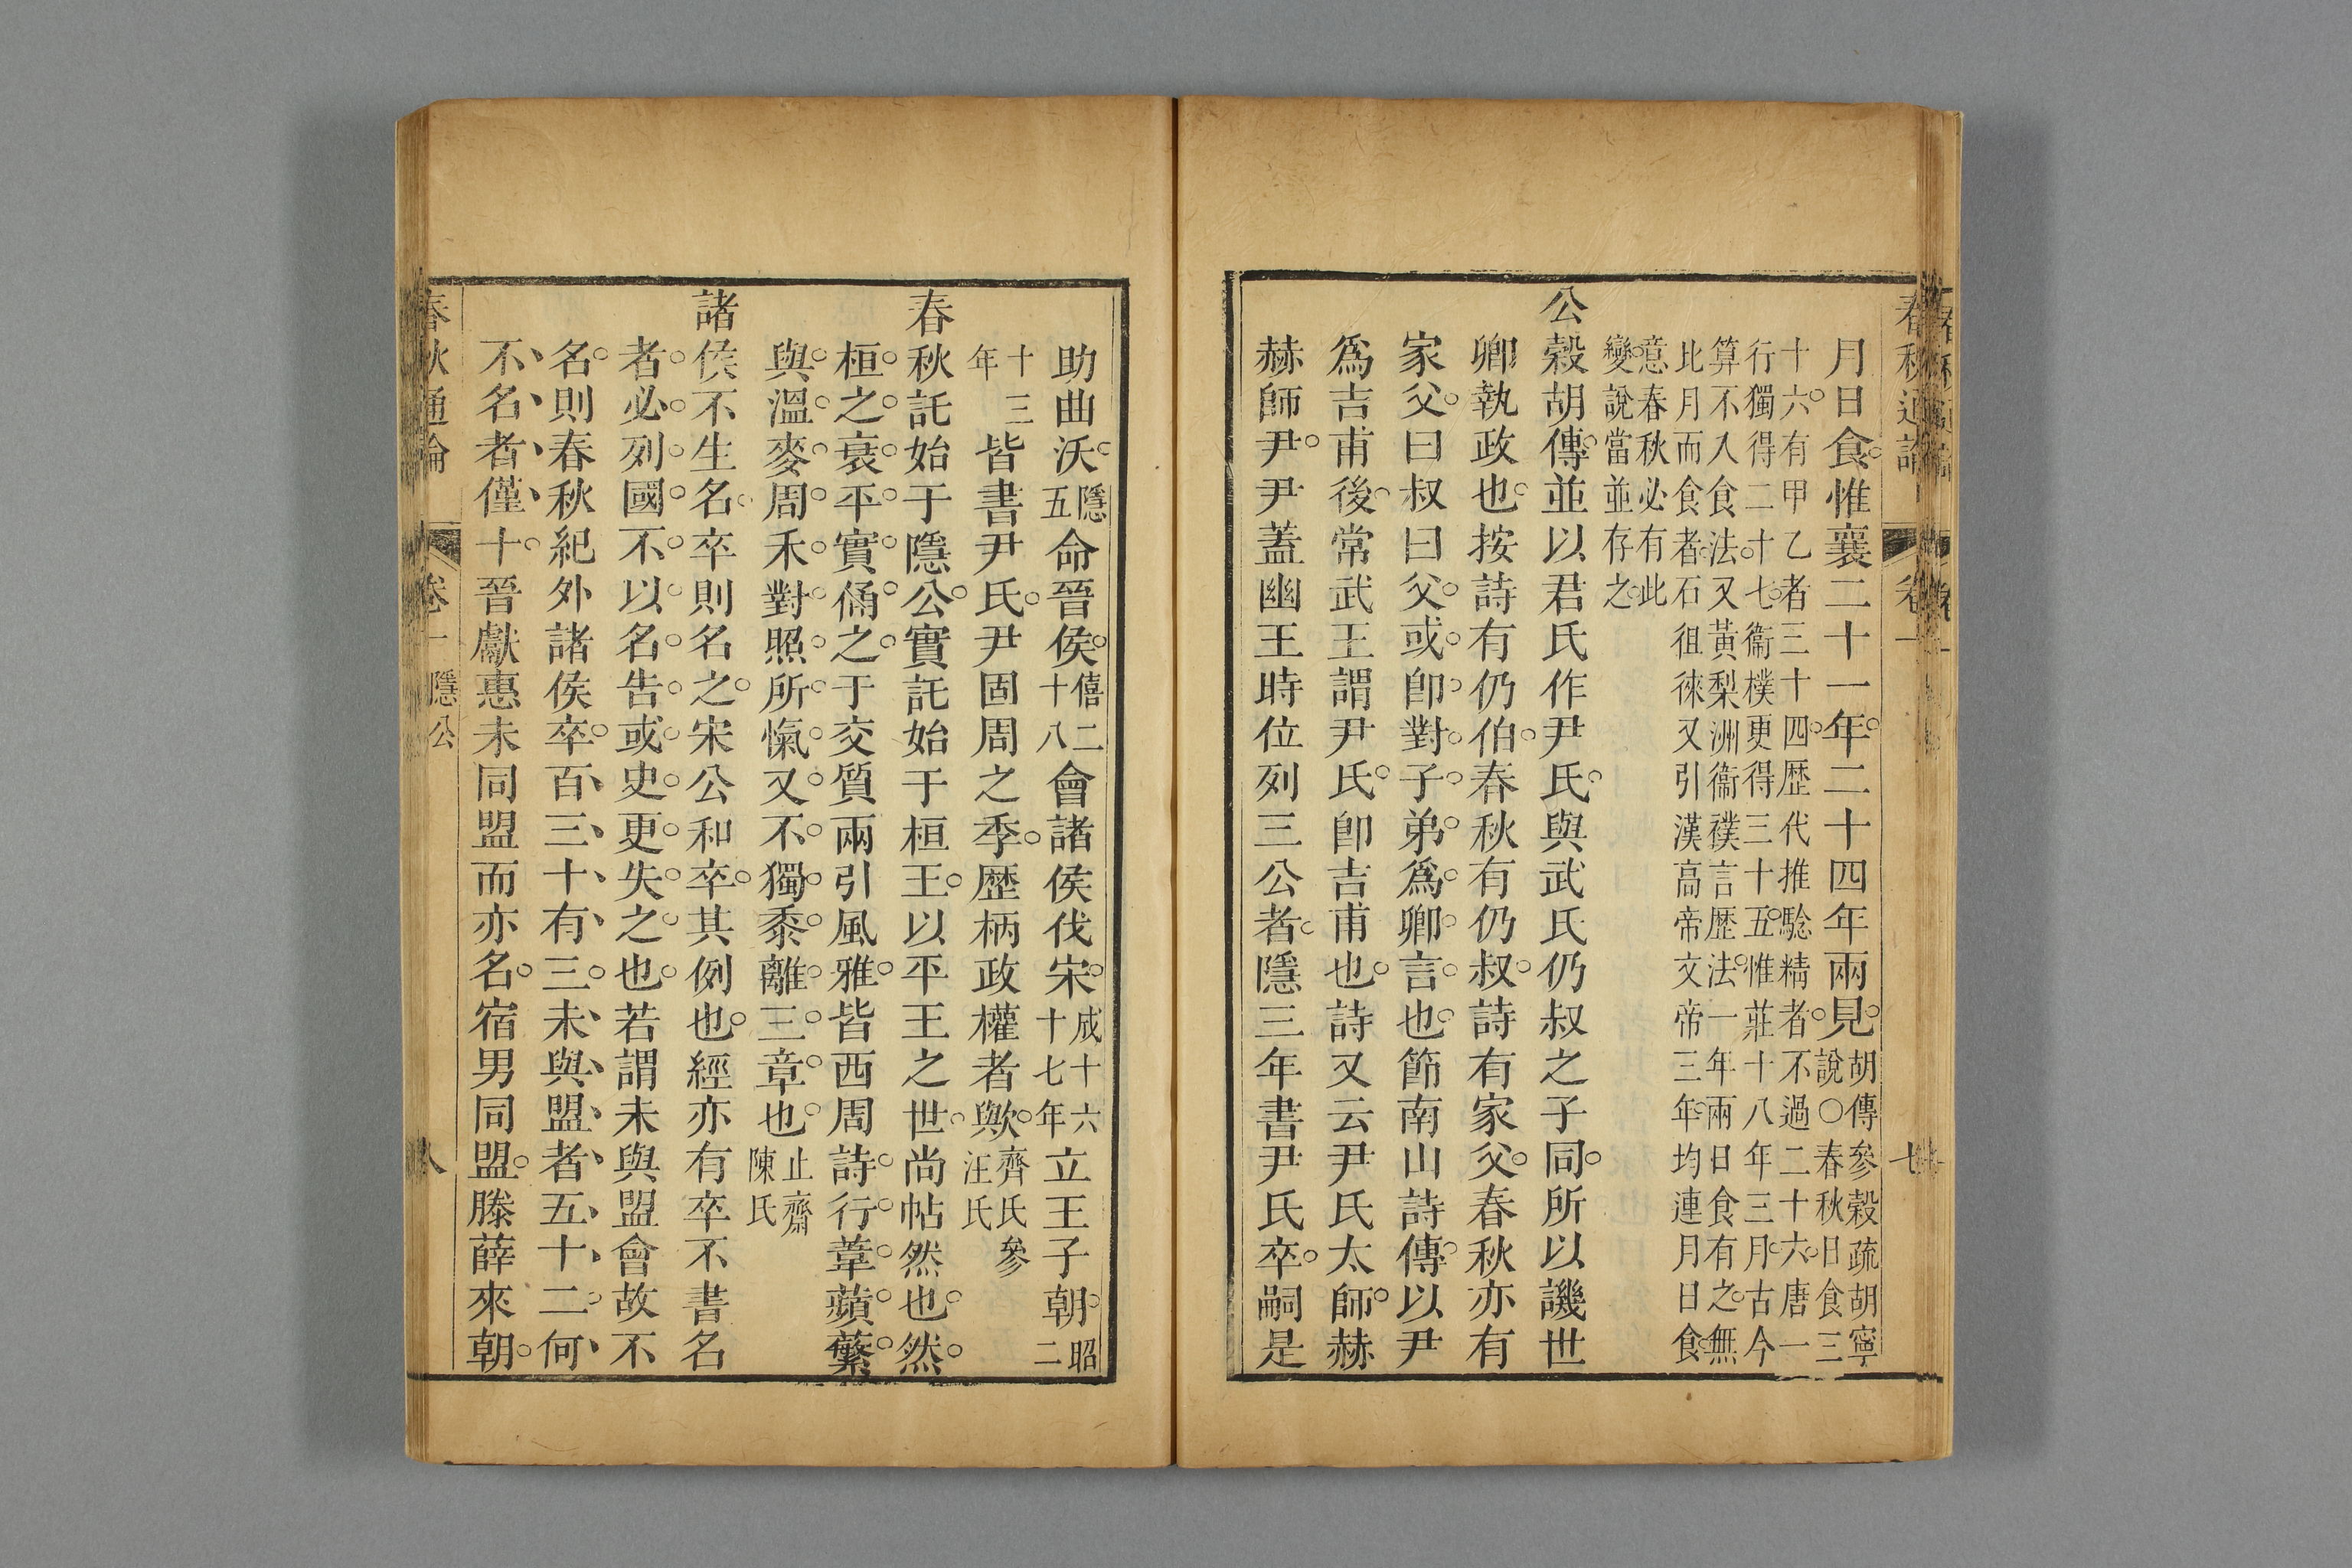 月日食惟襄二十一年二十四年兩見胡傳參穀疏胡寧
說○春秋日食三
十六有甲乙者三十四歷代推騐精者不過二十六唐一
行獨得二十七衞樸更得三十五惟莊十八年三月古今
算不入食法又黃梨洲衞襆言歷法一年兩日食有之無
比月而食者石徂徠又引漢高帝文帝三年均連月日食
意春秋必有此
變說當並存之
公穀胡傳並以君氏作尹氏與武氏仍叔之子同所以譏世
卿執政也按詩有仍伯春秋有仍叔詩有家父春秋亦有
家父曰叔曰父或卽對子弟爲卿言也節南山詩傳以尹
爲吉甫後常武王謂尹氏卽吉甫也詩又云尹氏太師赫
赫師尹尹蓋幽王時位列三公者隱三年書尹氏卒嗣是
助曲沃隱五命晉侯僖二十八會諸侯伐宋成十六十七年立王子朝昭二
十三年皆書尹氏尹固周之季歷柄政權者歟齊氏參汪氏
春秋託始于隱公實託始于桓王以平王之世尚帖然也然
桓之衰平實俑之于交質兩引風雅皆西周詩行葦蘋蘩
與溫麥周禾對照所愾又不獨黍離三章也止齋陳氏
諸侯不生名卒則名之宋公和卒其例也經亦有卒不書名
者必列國不以名告或史更失之也若謂未與盟會故不
名則春秋紀外諸侯卒百三十有三未與盟者五十二何
不名者僅十晉獻惠未同盟而亦名宿男同盟滕薛來朝
春秋通論 卷一 隱公 八